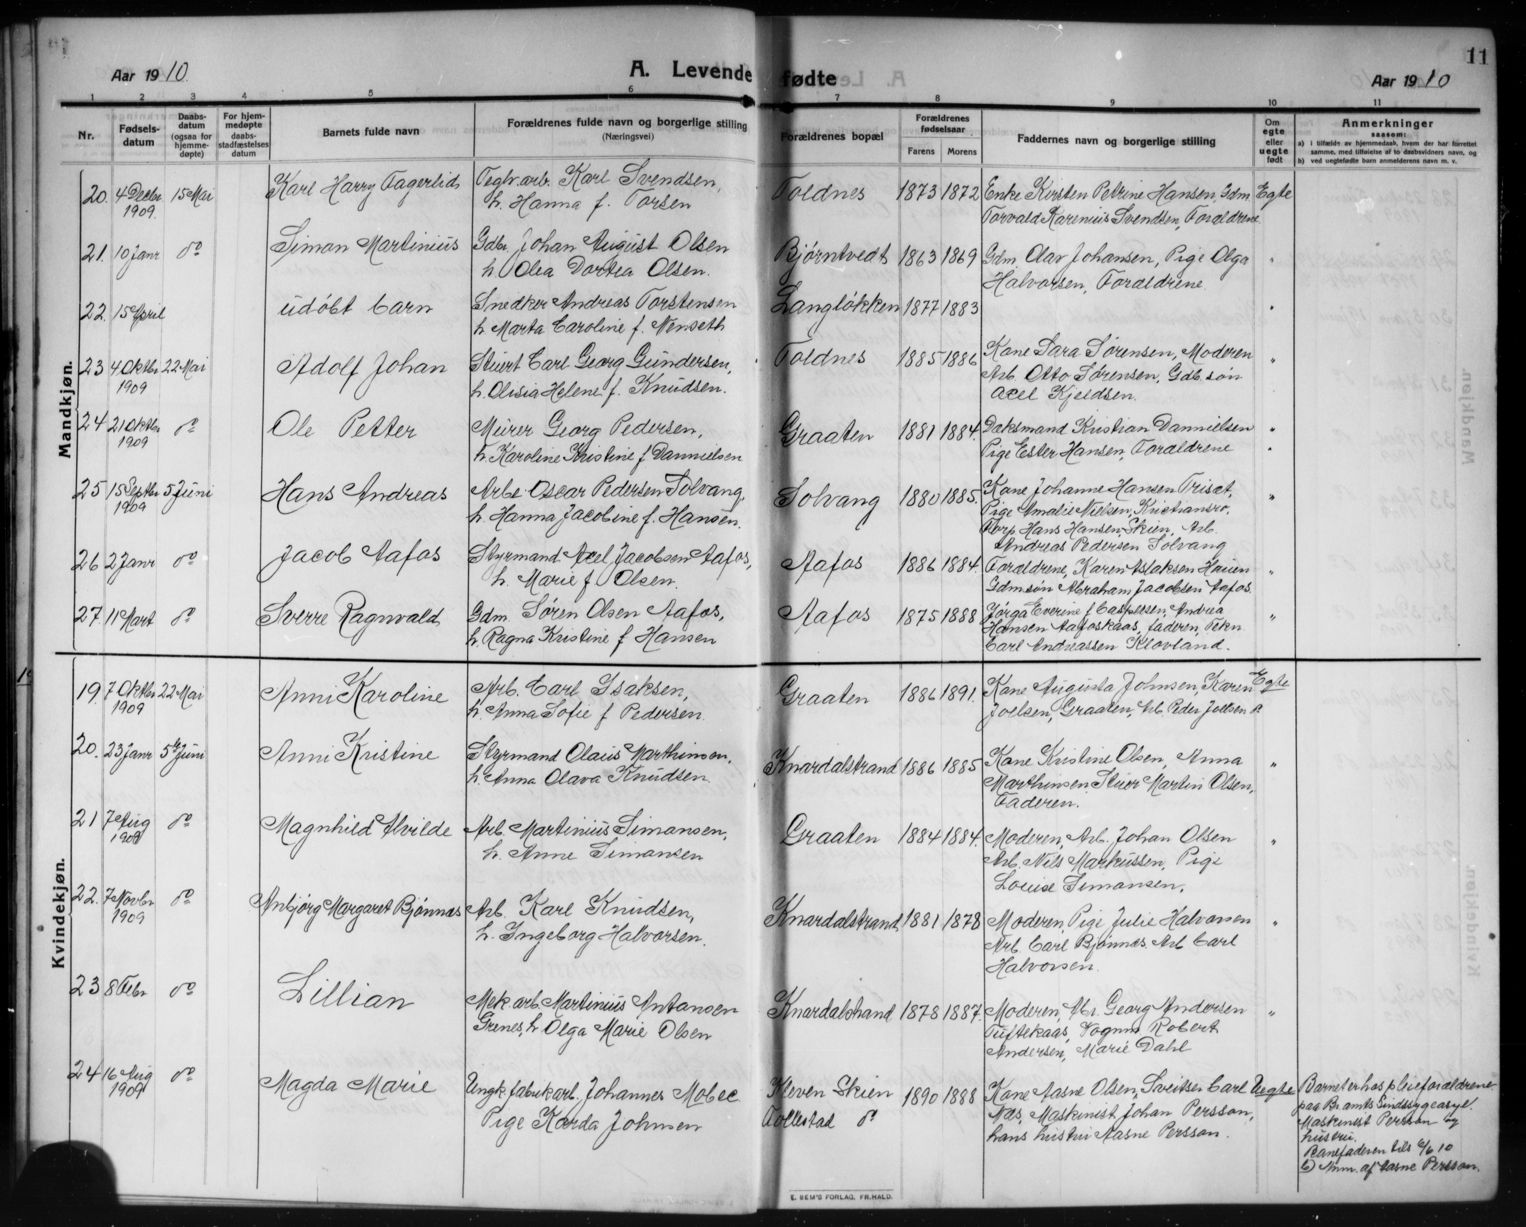 Aar 1910.
A. Levende fødte
Aar 1910
11
1 2 3 4 5 6 7 8 9 10 11
Nr.
Fødsels-
datum
Daabs-
datum
(ogsaa for
hjemme-
døpte)
For hjem-
medøpte
daabs-
stadfæstelses
datum
Barnets fulde navn
Forældrenes fulde navn og borgerlige stilling
(Næringsvei)
Forældrenes bopæl
Forældrenes
fødselsaar
Farens Morens
Faddernes navn og borgerlige stilling
Om
egte
eller
uegte
født
Anmerkninger
saasom:
a) i tilfælde av hjemmedaab, hvem der har forrettet
samme, med tilføielse af to daabsvidners navn, og
b) ved uegtefødte barn anmelderens navn m. v.
Mandkjøn.
20. 4 Decbr 15 Mai Karl Harry Fagerlid Teglv.arb. Karl Svendsen, Toldnes 1873 1872 Enke Kirsten Petrine Hansen, Gdm Egte
1909. h. Hanna f. Torsen Torvald Karenius Svendsen, Forældrene
21. 10 Janr do Simon Martinius Gdbr. Johan August Olsen Bjørntvedt 1863 1869 Gdm Olav Johansen, Pige Olga "
h. Olea Dortea Olsen. Halvorsen, Forældrene.
22. 15 April udøbt barn Snedker Andreas Torstensen Langløkken 1877 1883 "
h. Marta Caroline f. Nenseth
23 4 Oktbr 22 Mai Adolf Johan Stuert Carl Georg Gundersen, Toldnes 1885 1886 Kone Sara Sørensen, Moderen "
1909 h. Olisia Helene f. Knudsen. Arb. Otto Sørensen, Gdb. søn
Acel Kjeldsen.
24 21 Oktbr do Ole Petter Murer Georg Pedersen, Graaten 1881 1884. Daksmand Kristian Dannielsen "
1909 h. Karoline Kristine f Dannielsen Pige Ester Hansen, Forældrene "
25 15 Septbr 5 Juni Hans Andreas Arbe Oscar Pedersen Solvang, Solvang 1880 1885. Kone Johanne Hansen Triset, "
1909 h. Hanna Jacobine f. Hansen. Pige Amalie Nielsen, Kristiansro,
Hans Hansen, Skien, Arb.
Andreas Pedersen Solvang
26 2 Janr do Jacob Aafos Styrmand Acel Jacobsen Aafos, Aafos 1886 1884. Forældrene, Karen Aslaksen Hauen "
h. Marie f Olsen. Gdm søn Abraham Jacobsen Aafos.
27. 11 Mart do Sverre Ragnvald Gdm Søren Olsen Aafos, Aafos 1875 1888 Jørga Everine f Caspersen, Andrea "
h. Ragna Kristine f Hansen Hansen Aafoskaas, faderen,
Carl Andreassen Klovland.
Kvindekjøn.
19. 7 Oktbr 22 Mai Anni Karoline Arb. Carl Isaksen, Graaten 1886 1891. Kone Augusta Johnsen, Karen Egte
1909 h. Anna Sofie f Pedersen. Joelsen, Graaten, Arb. Peder Joelsen
20. 23 Janr 5te Juni Anni Kristine Styrmand Olaus Marthinsen, Knardalstrand 1886 1885 Kone Kristine Olsen, Anna "
h. Anna Olava Knudsen. Marthinsen, Martin Olsen,
Faderen.
21 7 Aug do Magnhild Alvilde Arb. Martinius Simansen, Graaten 1884 1884. Moderen, Arb. Johan Olsen "
1909 h. Anne Simansen Arb. Nils Markussen, Pige
Louise Simansen,
22. 7 Novbr do Anbjørg Margaret Bjønnes Arb. Karl Knudsen, Knardalstrand 1881 1878 Moderen, Pige Julie Halvorsen "
1909 h. Ingeborg Halvorsen. Arb Carl Bjønnes Arb Carl
Halvorsen.
23 8 Febr do Lillian Mek arb. Martinius Antonsen Knardalstrand 1878 1887. Moderen, Georg Andersen "
Grenes, h. Olga Marie Olsen Tuftekaas, Robert
Andersen, Marie Dahl
24 16 Aug do Magda Marie Ungk. fabrikarb. Johannes Mobec Kleven Skien 1890 1888 Kone Aasne Olsen, Carl Uegte Barnet er hos pleieforældrene
1909 Pige Karda Johnsen Follestad do Næs, Maskinist Johan Persson, paa Br. amts Sindssygeasyl.
hans hustru Aasne Persson. Maskinist Persson og
hustru.
Barnefaderen tils 6/6 10
b) Anm. af Aasne Persson.
E. SEM'S FORLAG, FR.HALD.